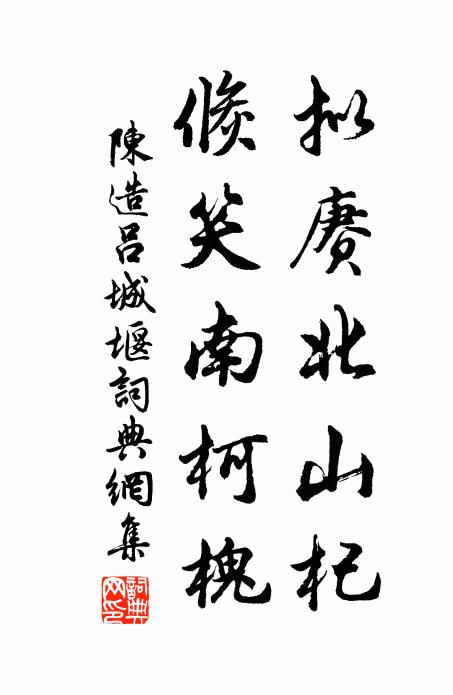 拟赓北山杞
倏笑南柯槐
陳造吕城堰詞典網集
詞典網印